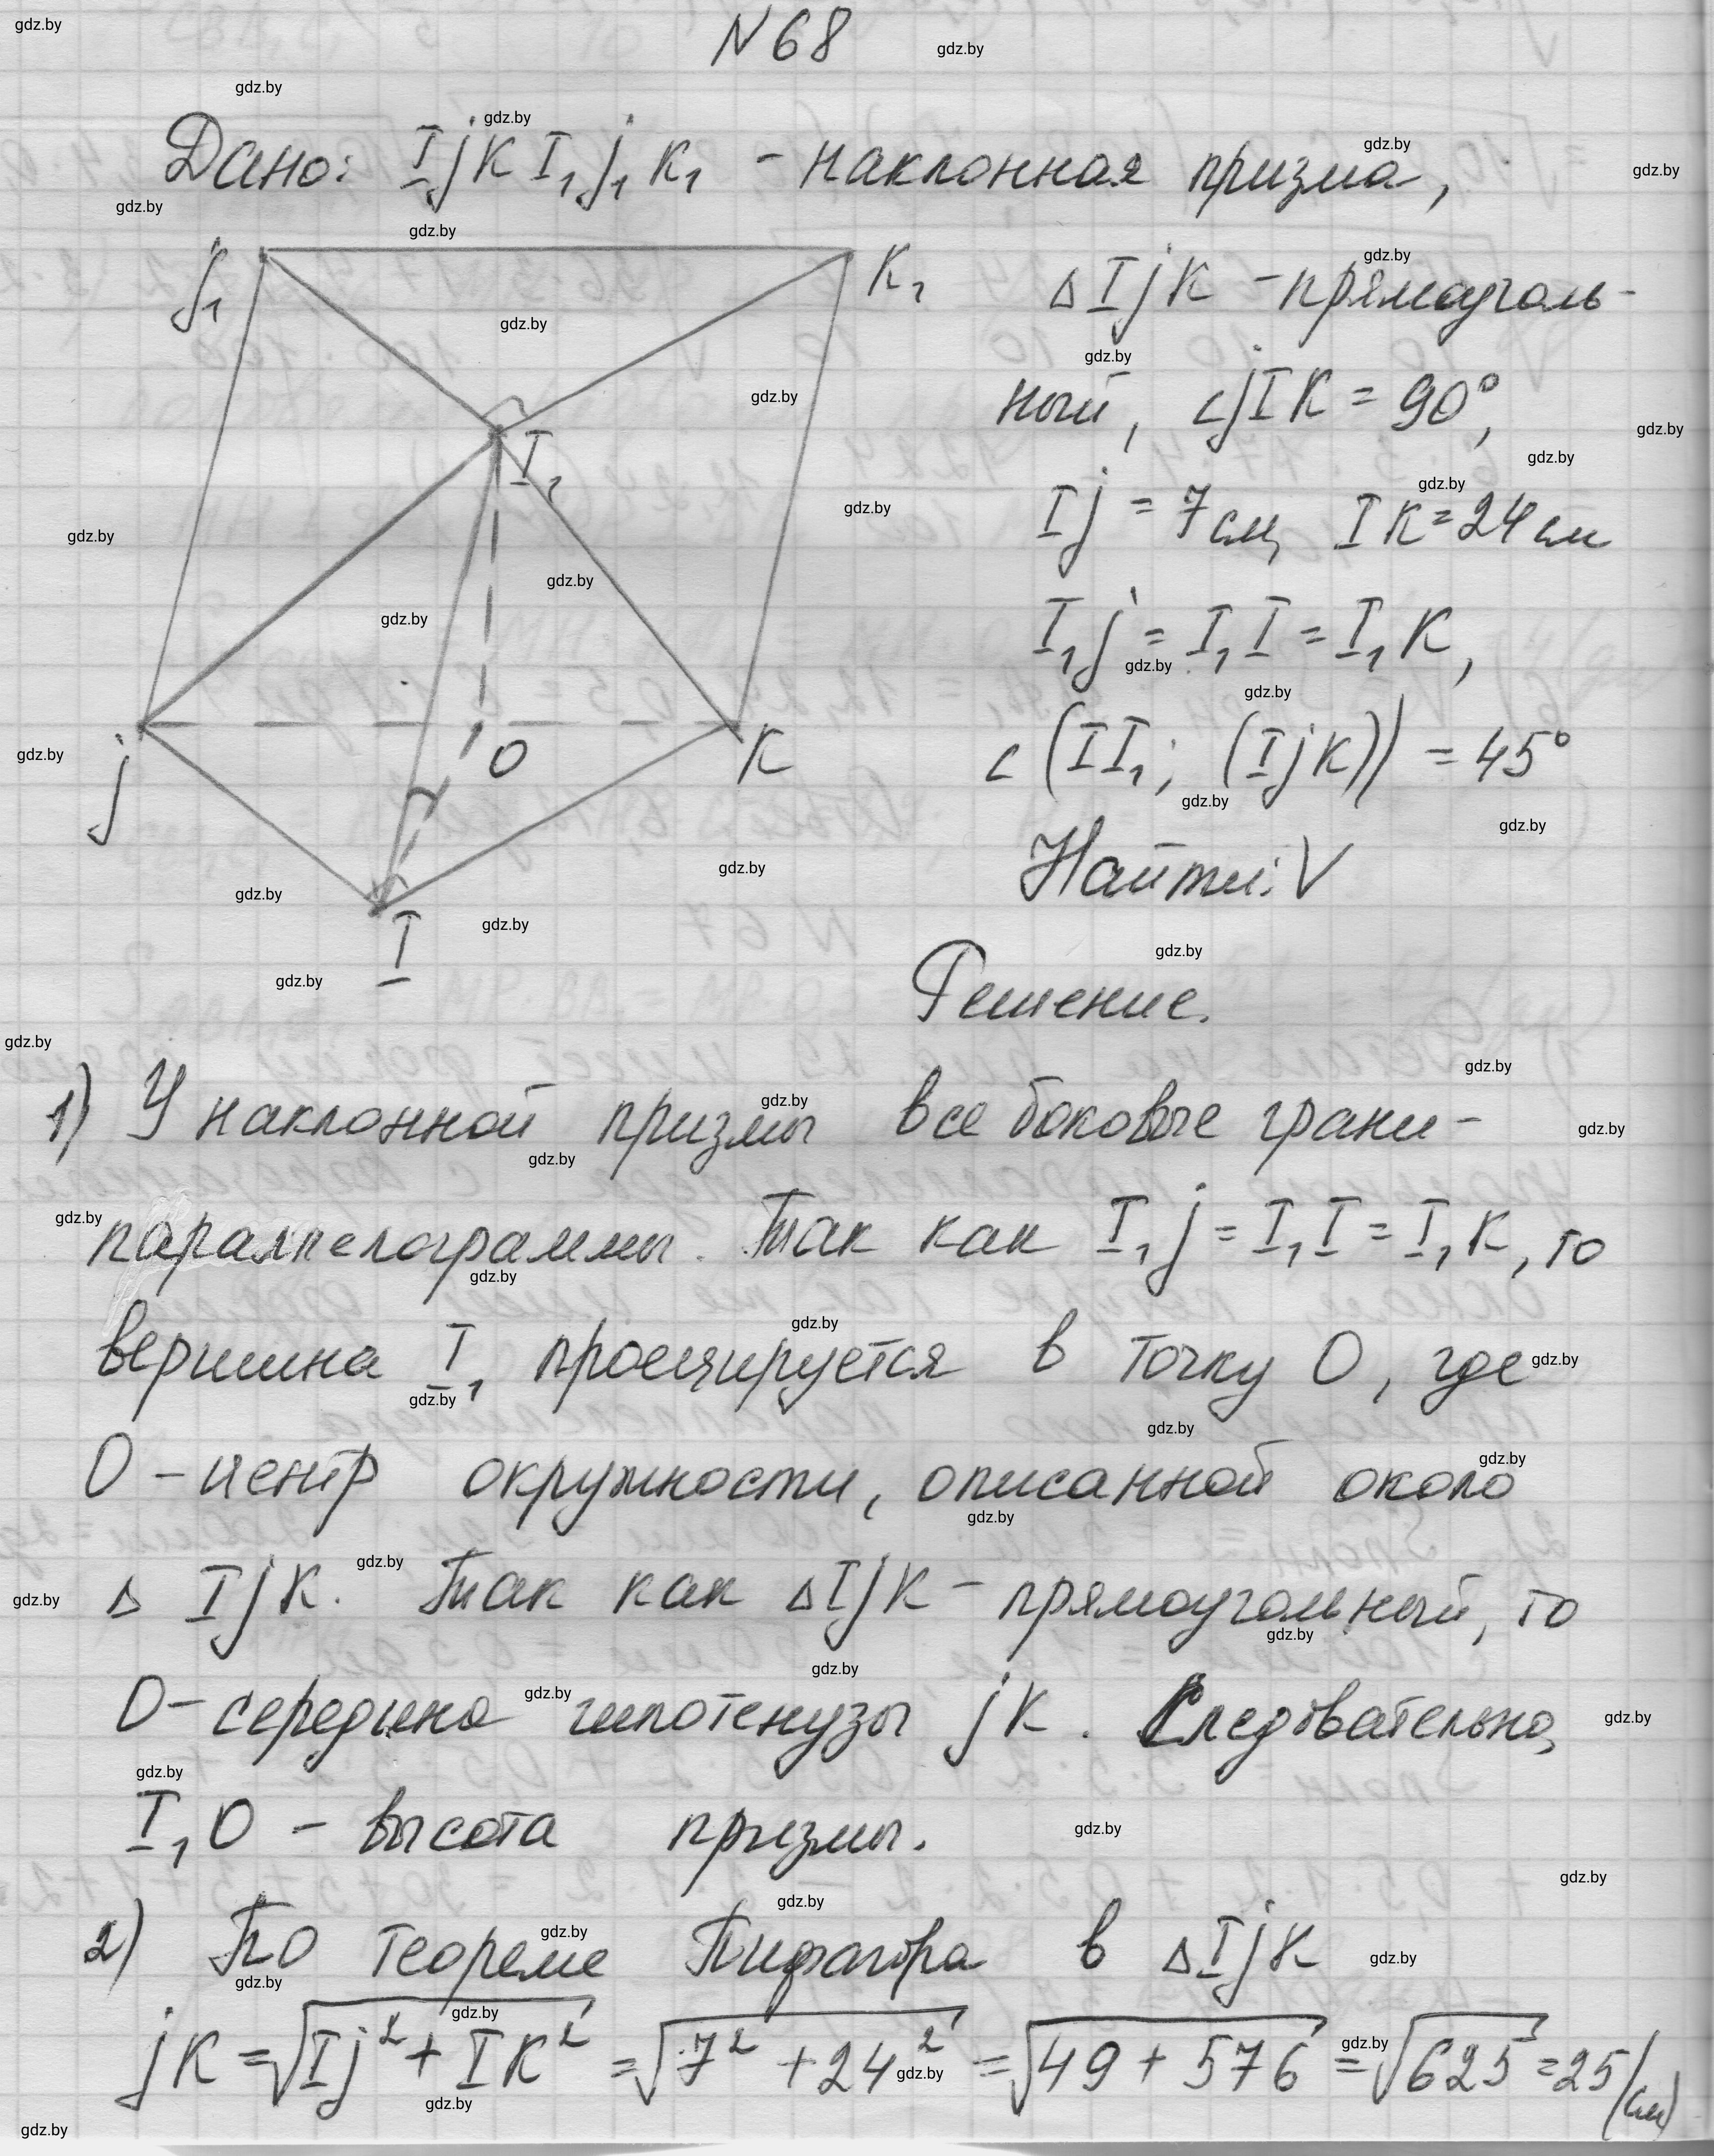 N 68
Дано: IjK I₁j₁K₁ - наклонная призма,
j₁
K₁
Δ IjK - прямоуголь-
ный, ∠jIK = 90°,
I₁
Ij = 7см, IK = 24 см
I₁j = I₁I = I₁K,
∠(II₁; (IjK)) = 45°
j
O
K
Найти: V
I
Решение.
1) У наклонной призмы все боковые грани-
параллелограммы. Так как I₁j = I₁I = I₁K, то
вершина I₁ проецируется в точку O, где
O - центр окружности, описанной около
Δ IjK. Так как ΔIjK - прямоугольный, то
O - середина гипотенузы jK. Следовательно,
I₁O - высота призмы.
2) По теореме Пифагора в ΔIjK
jK = √(Ij² + IK²) = √(7² + 24²) = √(49 + 576) = √625 = 25 (см)
gdz.by